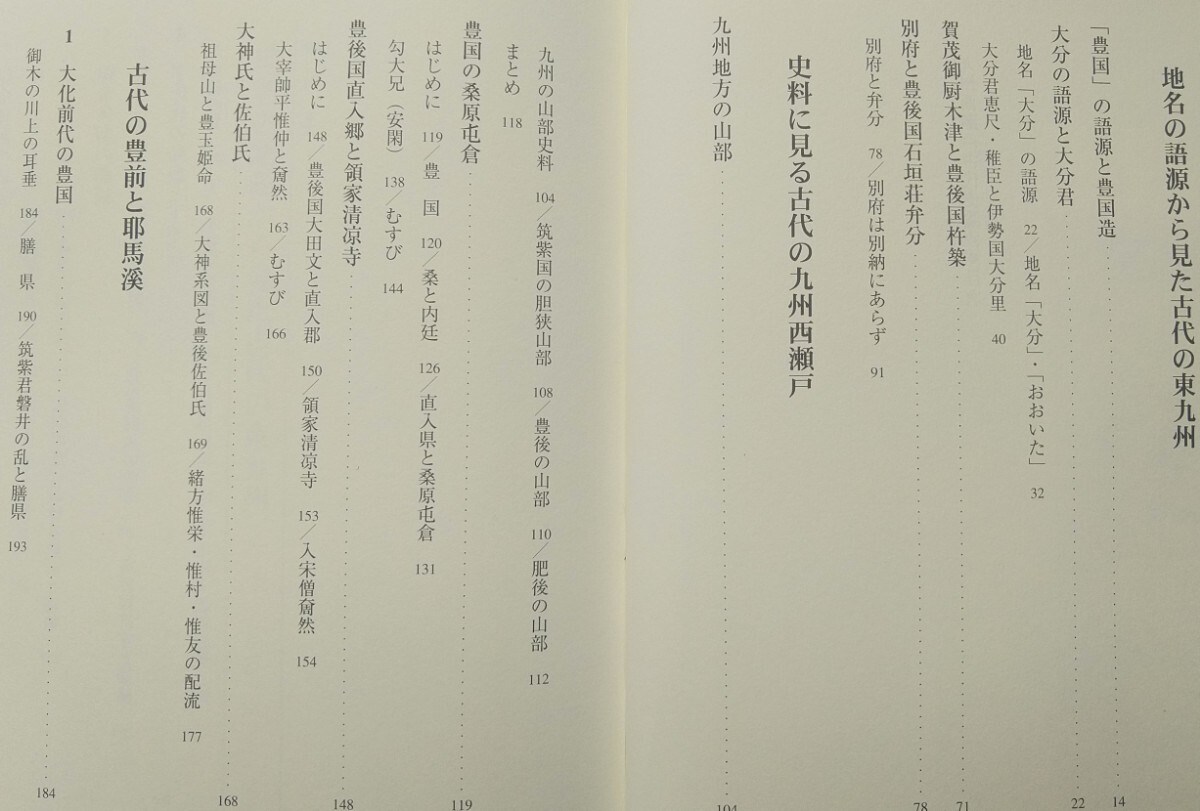 地名の語源から見た古代の東九州
「豊国」の語源と豊国造 14
大分の語源と大分君 22
地名「大分」の語源 22/地名「大分」・「おおいた」 32
大分君恵尺・稚臣と伊勢国大分里 40
賀茂御厨木津と豊後国杵築 71
別府と豊後国石垣荘弁分 78
別府と弁分 78/別府は別納にあらず 91
史料に見る古代の九州西瀬戸
九州地方の山部 104
九州の山部史料 104/筑紫国の胆狭山部 108/豊後の山部 110/肥後の山部 112
まとめ 118
豊国の桑原屯倉 119
はじめに 119/豊 国 120/桑と内廷 126/直入県と桑原屯倉 131
勾大兄(安閑) 138/むすび 144
豊後国直入郷と領家清凉寺 148
はじめに 148/豊後国大田文と直入郡 150/領家清凉寺 153/入宋僧奝然 154
大宰帥平惟仲と奝然 163/むすび 166
大神氏と佐伯氏 168
祖母山と豊玉姫命 168/大神系図と豊後佐伯氏 169/緒方惟栄・惟村・惟友の配流 177
古代の豊前と耶馬溪
1 大化前代の豊国 184
御木の川上の耳垂 184/膳 県 190/筑紫君磐井の乱と膳県 193